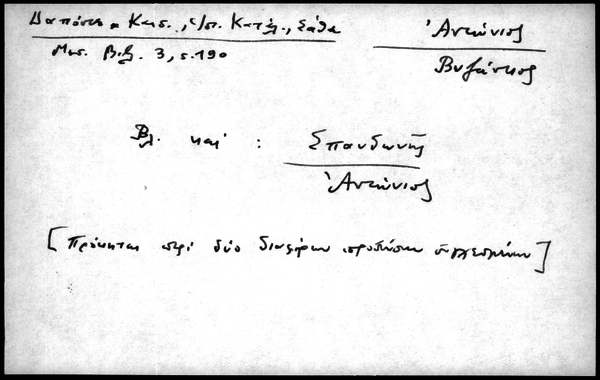 Δαπόντε Καισ., Ἱστ. Κατάλ., Σάθα
Μεσ. Βιβ. 3, σ. 190
Ἀντώνιος
Βυζάντιος
Βλ. καί : Σπανδωνῆς
Ἀντώνιος
[Πρόκειται περί δύο διαφόρων προσώπων